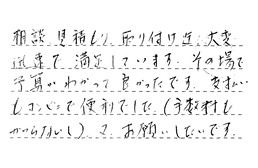 相談、見積もり、取り付け迄、大変
迅速で満足しています。その場で
予算がわかって良かったです。支払い
もコンビニで便利でした(手数料も
かからないし)。又、お願いしたいです。